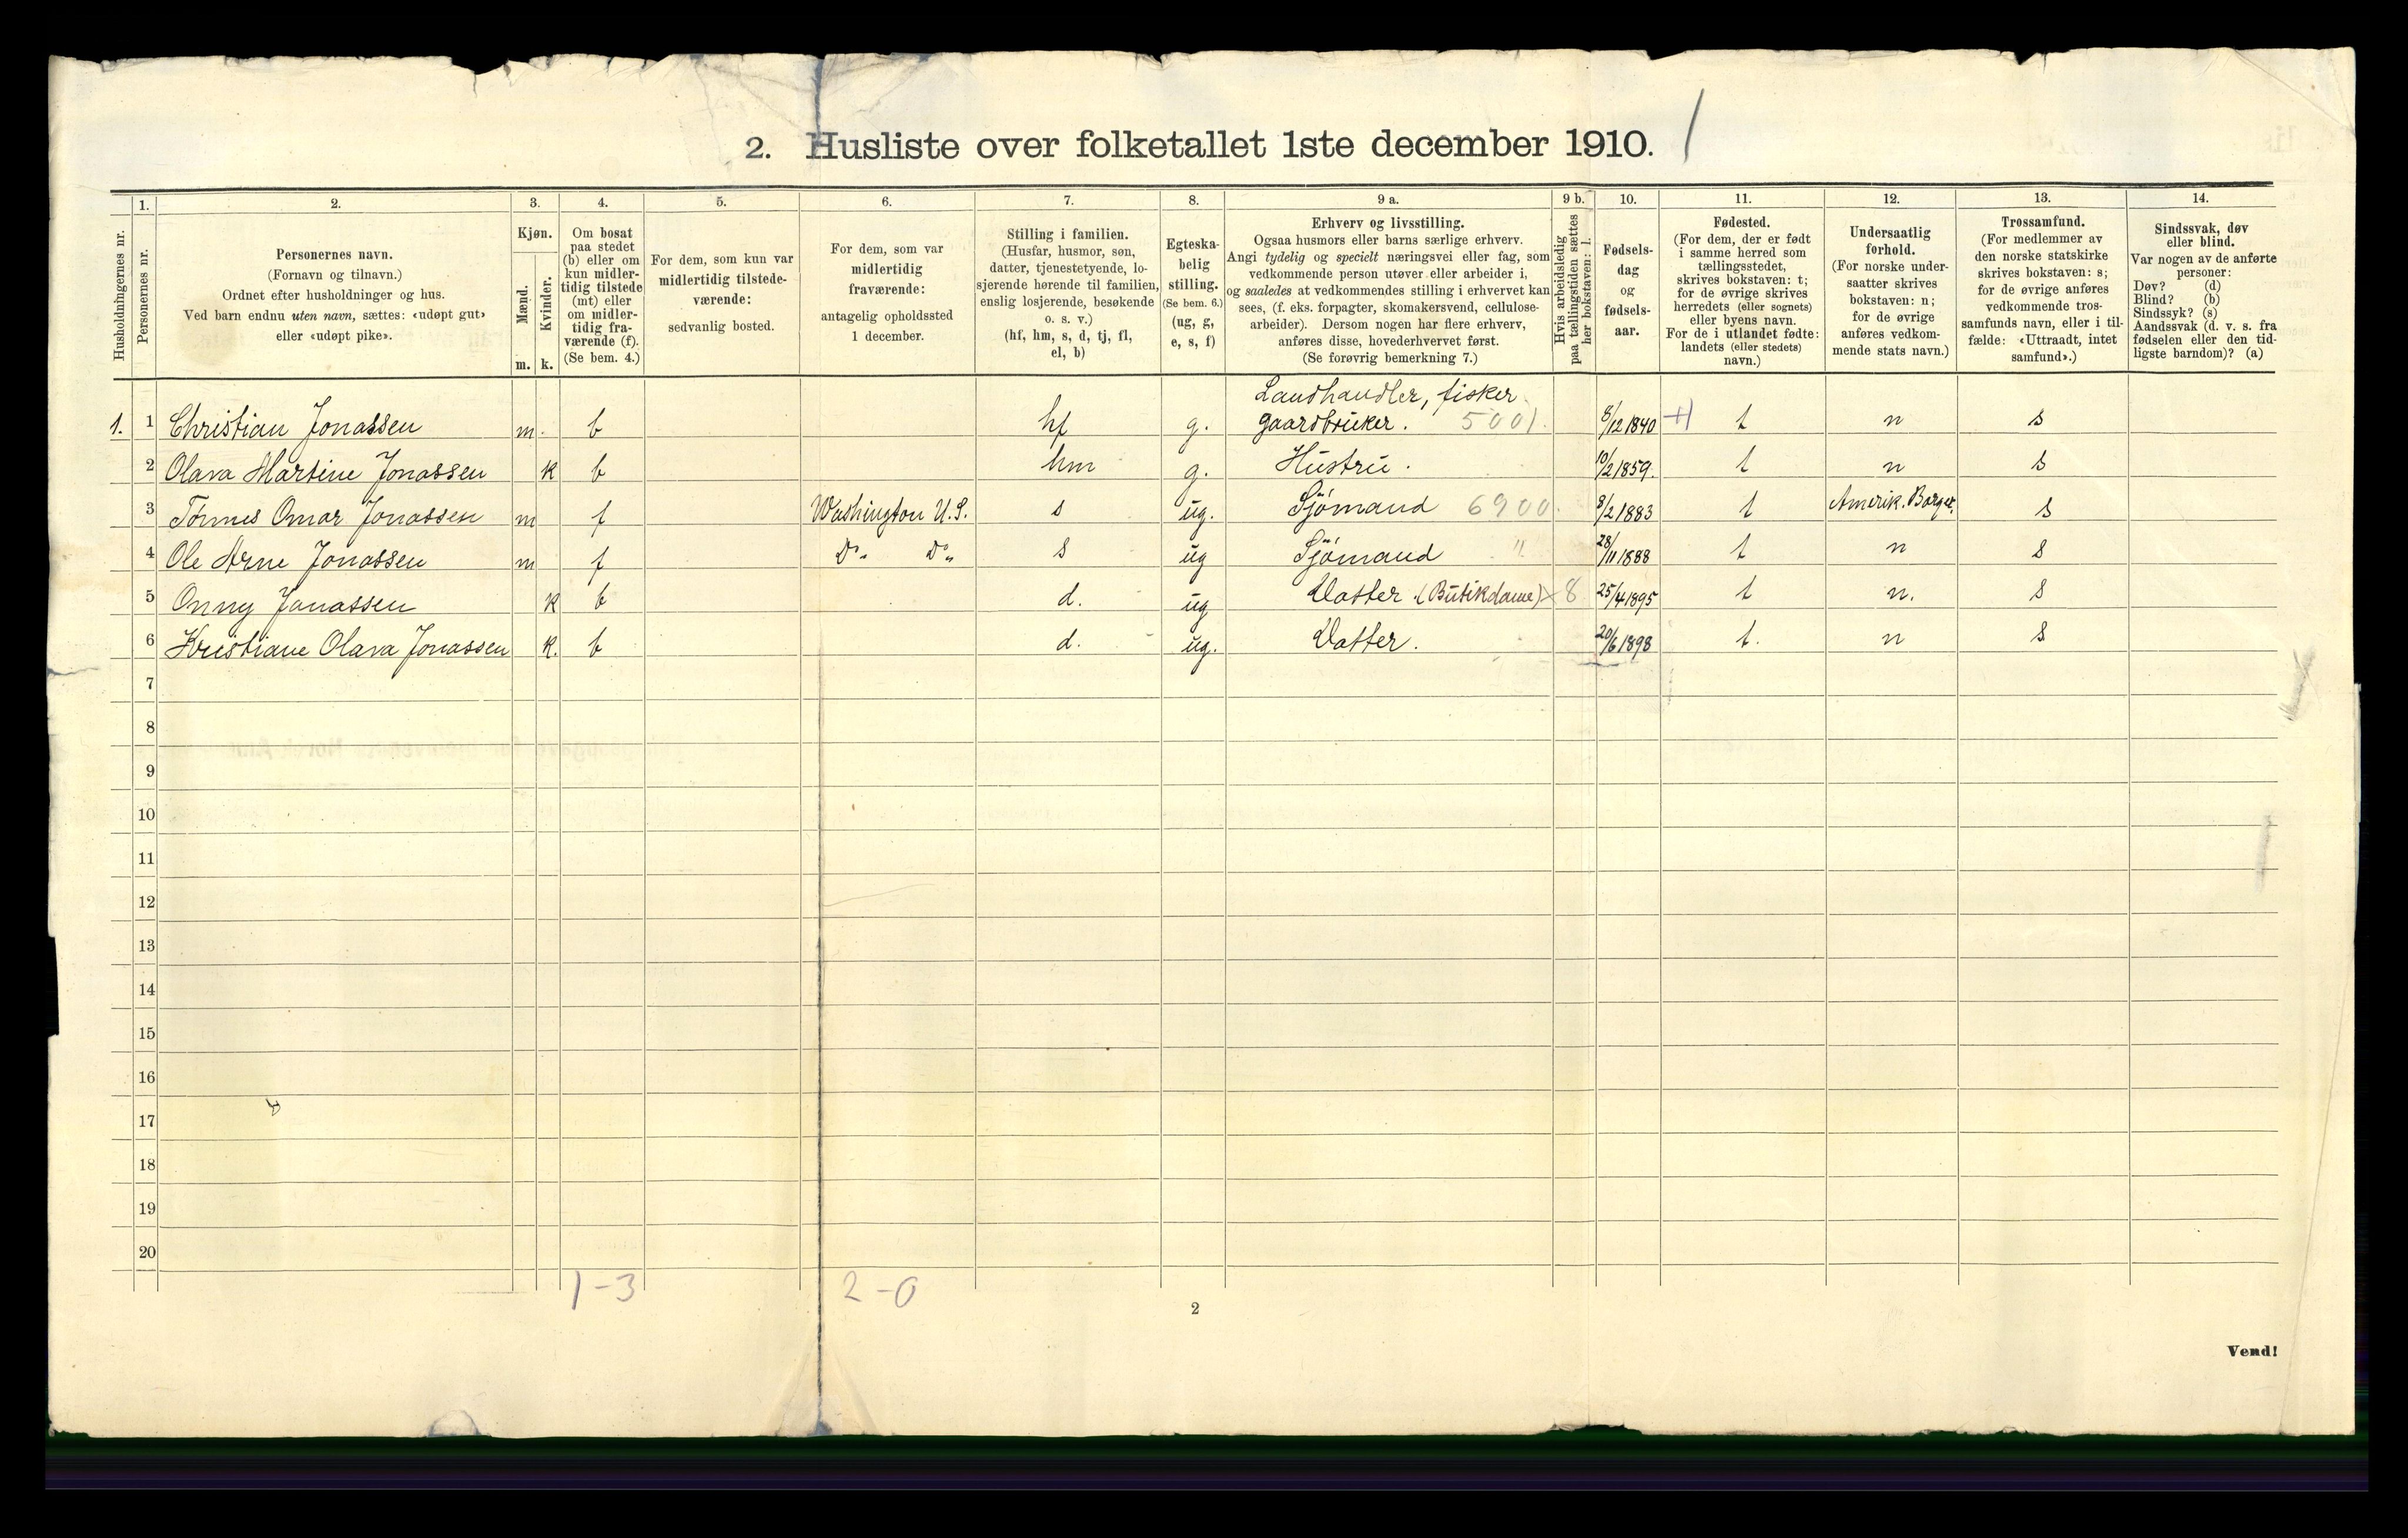 2. Husliste over folketallet 1ste december 1910. /
Husholdningernes nr.
1. Personernes nr.
2. Personernes navn. (Fornavn og tilnavn.) Ordnet efter husholdninger og hus. Ved barn endnu uten navn, sættes: «udøpt gut» eller «udøpt pike».
3. Kjøn. Mænd. m. Kvinder. k.
4. Om bosat paa stedet (b) eller om kun midlertidig tilstede (mt) eller om midlertidig fraværende (f). (Se bem. 4.)
5. For dem, som kun var midlertidig tilstedeværende: sedvanlig bosted.
6. For dem, som var midlertidig fraværende: antagelig opholdssted 1 december.
7. Stilling i familien. (Husfar, husmor, søn, datter, tjenestetyende, losjerende hørende til familien, enslig losjerende, besøkende o. s. v.) (hf, hm, s, d, tj, fl, el, b)
8. Egteskabelig stilling. (Se bem. 6.) (ug, g, e, s, f)
9 a. Erhverv og livsstilling. Ogsaa husmors eller barns særlige erhverv. Angi tydelig og specielt næringsvei eller fag, som vedkommende person utøver eller arbeider i, og saaledes at vedkommendes stilling i erhvervet kan sees, (f. eks. forpagter, skomakersvend, cellulosearbeider). Dersom nogen har flere erhverv, anføres disse, hovederhvervet først. (Se forøvrig bemerkning 7.)
9 b. Hvis arbeidsledig paa tællingstiden sættes her bokstaven: l.
10. Fødselsdag og fødselsaar.
11. Fødested. (For dem, der er født i samme herred som tællingsstedet, skrives bokstaven: t; for de øvrige skrives herredets (eller sognets) eller byens navn. For de i utlandet fødte: landets (eller stedets) navn.)
12. Undersaatlig forhold. (For norske undersaatter skrives bokstaven: n; for de øvrige anføres vedkommende stats navn.)
13. Trossamfund. (For medlemmer av den norske statskirke skrives bokstaven: s; for de øvrige anføres vedkommende trossamfunds navn, eller i tilfælde: «Uttraadt, intet samfund».)
14. Sindssvak, døv eller blind. Var nogen av de anførte personer: Døv? (d) Blind? (b) Sindssyk? (s) Aandssvak (d. v. s. fra fødselen eller den tidligste barndom)? (a)
Landhandler, fisker
1. 1 Christian Jonassen m. b hf g. gaardbruker. 5001. 8/12 1840 t n s
2 Olava Martine Jonassen k b hm g. Hustru. 10/2 1859. t n s
3 Tønnes Omar Jonassen m f Washington U.S. s ug. Sjömand 6900. 8/2 1883 t Amerik. Borger. s
4 Ole Arne Jonassen m f Do. Do. s ug Sjömand " 28/11 1888 t n s
5 Onny Jonassen k b d. ug Datter. (Butikdame) x 8 25/4 1895 t n. s
6 Kristiane Olava Jonassen k. b d. ug. Datter. 20/6 1898 t. n s
7
8
9
10
11
12
13
14
15
16
17
18
19
20
1-3 2-0
2
Vend!